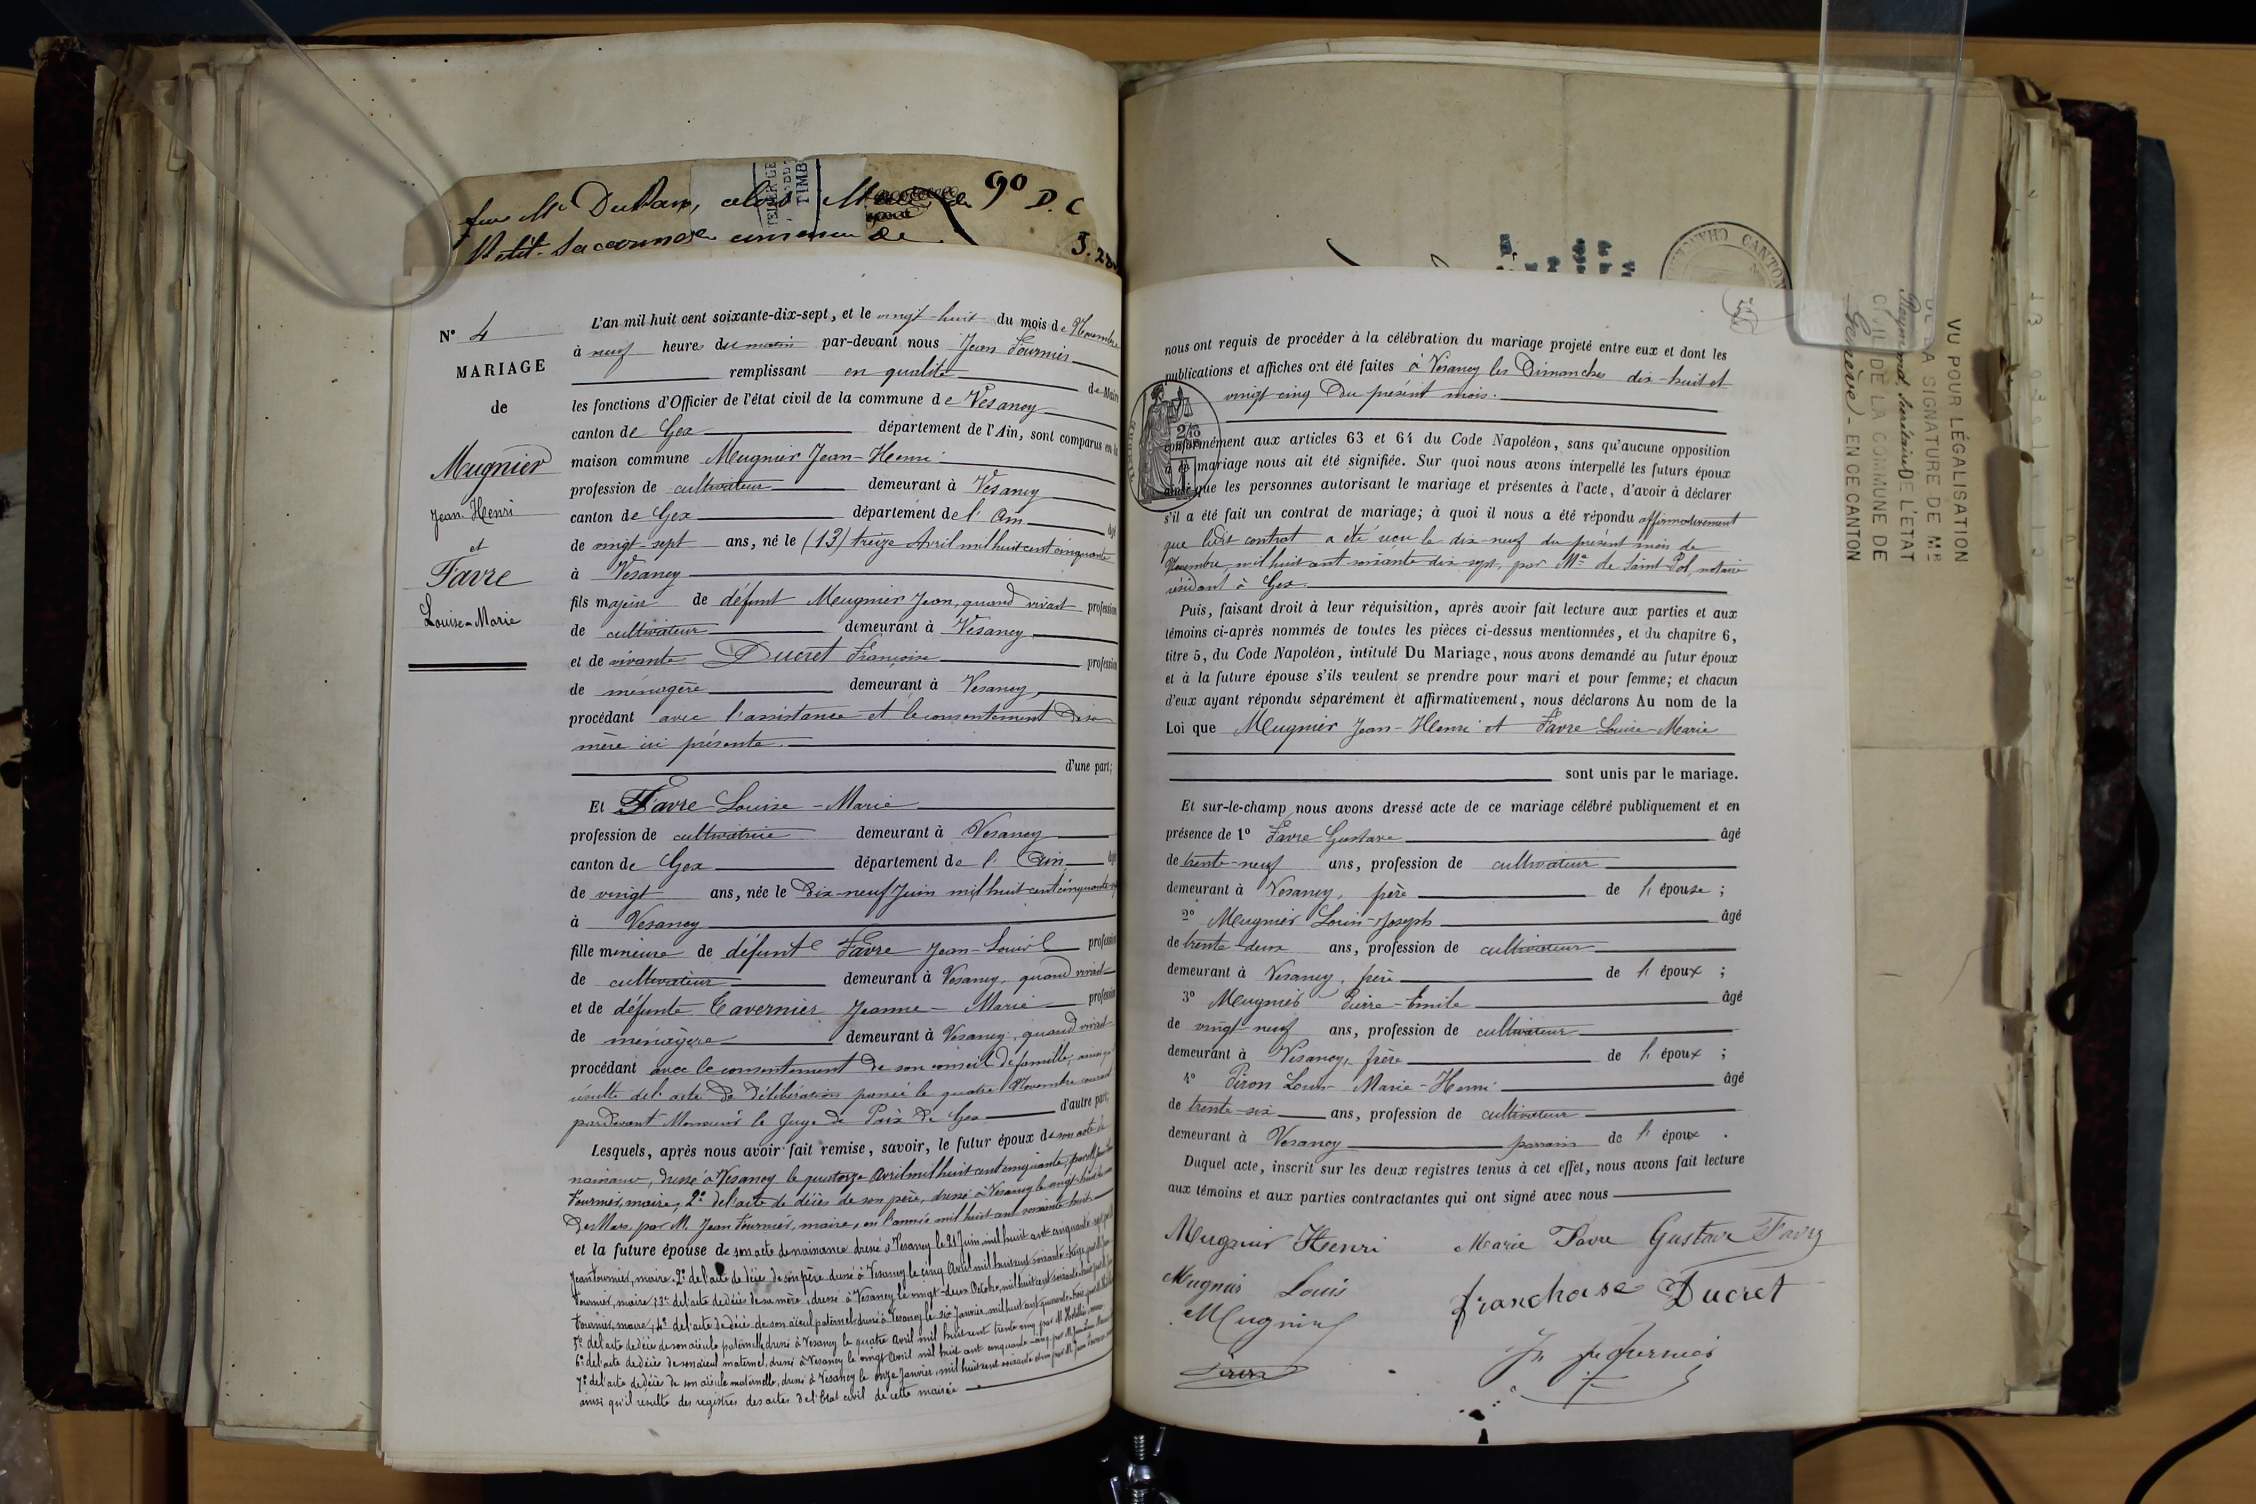 90 D. C
Petit-Saconnex
N° 4
MARIAGE
de
Meugnier
Jean-Henri
et
Favre
Louise-Marie
L'an mil huit cent soixante-dix-sept, et le vingt-huit du mois de Novembre
à neuf heures du matin par-devant nous Jean Fournier
remplissant en qualité de Maire
les fonctions d'Officier de l'état civil de la commune de Vesancy
canton de Gex département de l'Ain, sont comparus en la
maison commune Meugnier Jean-Henri
profession de cultivateur demeurant à Vesancy
canton de Gex département de l'Ain âgé
de vingt-sept ans, né le (13) treize Avril mil huit cent cinquante
à Vesancy
fils majeur de défunt Meugnier Jean, quand vivait profession
de cultivateur demeurant à Vesancy
et de vivante Ducret Françoise profession
de ménagère demeurant à Vesancy,
procédant avec l'assistance et le consentement de sa
mère ici présente.
d'une part;
Et Favre Louise-Marie
profession de cultivatrice demeurant à Vesancy
canton de Gex département de l'Ain âgé
de vingt ans, née le Dix-neuf Juin mil huit cent cinquante-
à Vesancy
fille mineure de défunt Favre Jean-Louis profession
de cultivateur demeurant à Vesancy, quand vivait
et de défunte Tavernier Jeanne-Marie profession
de ménagère demeurant à Vesancy, quand vivait
procédant avec le consentement de son conseil de famille, ainsi qu'il
résulte de l'acte de délibération passé le quatre Novembre courant
pardevant Monsieur le Juge de Paix de Gex d'autre part;
Lesquels, après nous avoir fait remise, savoir, le futur époux de son acte de
naissance, dressé à Vesancy le quatorze Avril mil huit cent cinquante, par M. Jean
Fournier, maire; 2° de l'acte de décès de son père, dressé à Vesancy le vingt-huit
de Mars, par M. Jean Fournier, maire, en l'année mil huit cent soixante huit
et la future épouse de son acte de naissance dressé à Vesancy le 21 Juin mil huit cent cinquante sept
Jean Fournier, maire, 2° de l'acte de décès de son père dressé à Vesancy le cinq Avril mil huit cent soixante-treize
Fournier, maire; 3° de l'acte de décès de sa mère, dressé à Vesancy le vingt-deux Octobre, mil huit cent soixante
Fournier, maire, 4° de l'acte de décès de son aïeul paternel dressé à Vesancy le six Janvier, mil huit cent quarante-trois
5° de l'acte de décès de son aïeule paternelle, dressé à Vesancy le quatre Avril mil huit cent trente cinq par M.
6° de l'acte de décès de son aïeul maternel, dressé à Vesancy le vingt Avril mil huit cent cinquante-cinq par M.
7° de l'acte de décès de son aïeule maternelle, dressé à Vesancy le onze Janvier, mil huit cent soixante et un par M. Jean Fournier
ainsi qu'il résulte des registres des actes de l'Etat civil de cette mairie
nous ont requis de procéder à la célébration du mariage projeté entre eux et dont les
publications et affiches ont été faites à Vesancy les Dimanches dix-huit et
vingt cinq du présent mois.
conformément aux articles 63 et 64 du Code Napoléon, sans qu'aucune opposition
à ce mariage nous ait été signifiée. Sur quoi nous avons interpellé les futurs époux
ainsi que les personnes autorisant le mariage et présentes à l'acte, d'avoir à déclarer
s'il a été fait un contrat de mariage; à quoi il nous a été répondu affirmativement
que ledit contrat a été reçu le dix-neuf du présent mois de
Novembre, mil huit cent soixante dix sept, par Me de Saint-Pol, notaire
résidant à Gex.
Puis, faisant droit à leur réquisition, après avoir fait lecture aux parties et aux
témoins ci-après nommés de toutes les pièces ci-dessus mentionnées, et du chapitre 6,
titre 5, du Code Napoléon, intitulé Du Mariage, nous avons demandé au futur époux
et à la future épouse s'ils veulent se prendre pour mari et pour femme; et chacun
d'eux ayant répondu séparément et affirmativement, nous déclarons Au nom de la
Loi que Meugnier Jean-Henri et Favre Louise-Marie
sont unis par le mariage.
Et sur-le-champ nous avons dressé acte de ce mariage célébré publiquement et en
présence de 1° Favre Gustave âgé
de trente-neuf ans, profession de cultivateur
demeurant à Vesancy, frère de l'épouse;
2° Meugnier Louis-Joseph âgé
de trente-deux ans, profession de cultivateur
demeurant à Vesancy, frère de l'époux;
3° Meugnier Pierre-Emile âgé
de vingt-neuf ans, profession de cultivateur
demeurant à Vesancy, frère de l'époux;
4° Piron Louis-Marie-Henri âgé
de trente-six ans, profession de cultivateur
demeurant à Vesancy parrain de l'époux.
Duquel acte, inscrit sur les deux registres tenus à cet effet, nous avons fait lecture
aux témoins et aux parties contractantes qui ont signé avec nous
Meugnier Henri Marie Favre Gustave Favre
Meugnier Louis franchoise Ducret
Meugnier
Piron Jn Fournier
VU POUR LÉGALISATION
DE LA SIGNATURE DE MR
DE L'ETAT
CIVIL DE LA COMMUNE DE
Genève - EN CE CANTON